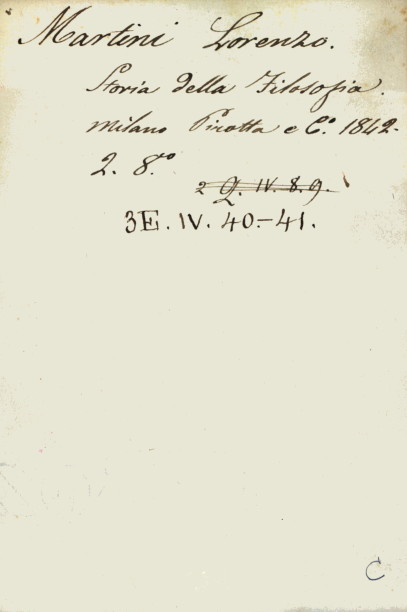 Martini Lorenzo.
Storia della Filosofia.
Milano Pirotta e C.º 1842.
2. 8.º
2 Q. IV. 8. 9.
3E. IV. 40.-41.
C